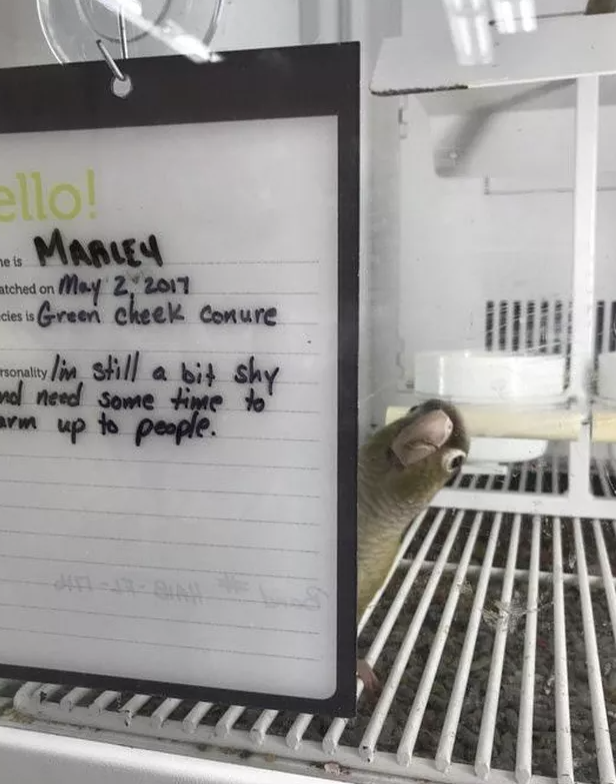 ello!
me is MARLEY
atched on May 2, 2017
cies is Green cheek conure
rsonality I'm still a bit shy
nd need some time to
arm up to people.
Band #